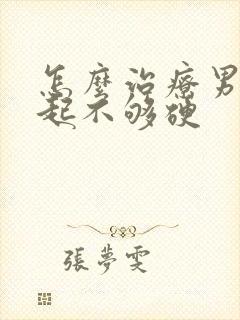 怎麼治療男
起不够硬
張夢雯